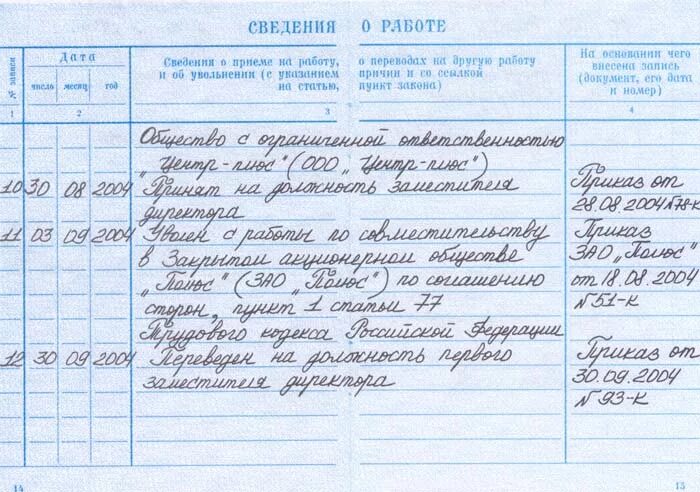 СВЕДЕНИЯ О РАБОТЕ
№ записи
Дата
Сведения о приеме на работу, о переводах на другую работу
и об увольнении (с указанием причин и со ссылкой
на статью, пункт закона)
На основании чего
внесена запись
(документ, его дата
и номер)
число месяц год
1 2 3 4
Общество с ограниченной ответственностью
„Центр-плюс" (ООО „Центр-плюс")
10 30 08 2004 Принят на должность заместителя
директора
Приказ от
28.08.2004 №78-К
11 03 09 2004 Уволен с работы по совместительству
в Закрытом акционерном обществе
„Полюс" (ЗАО „Полюс") по соглашению
сторон, пункт 1 статьи 77
Трудового кодекса Российской Федерации
Приказ
ЗАО „Полюс"
от 18.08.2004
№51-К
12 30 09 2004 Переведен на должность первого
заместителя директора
Приказ от
30.09.2004
№93-К
14 15